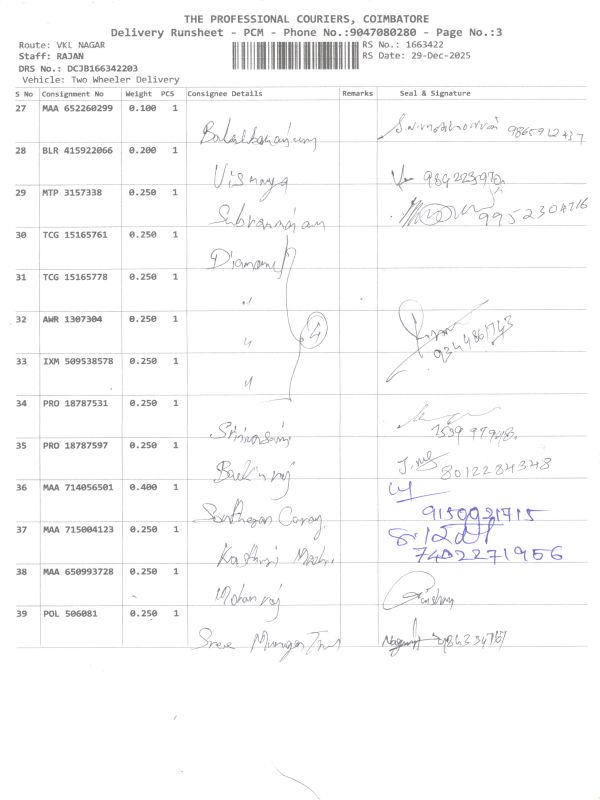 THE PROFESSIONAL COURIERS, COIMBATORE
Delivery Runsheet - PCM - Phone No.:9047080280 - Page No.:3
Route: VKL NAGAR RS No.: 1663422
Staff: RAJAN RS Date: 29-Dec-2025
DRS No.: DCJB166342203
Vehicle: Two Wheeler Delivery
S No Consignment No Weight PCS Consignee Details Remarks Seal & Signature
27 MAA 652260299 0.100 1
28 BLR 415922066 0.200 1
Vismaya
29 MTP 3157338 0.250 1
Subramaniam 9952304716
30 TCG 15165761 0.250 1
Diamond
31 TCG 15165778 0.250 1
"
32 AWR 1307304 0.250 1
" 4 9344861743
33 IXM 509538578 0.250 1
"
34 PRO 18787531 0.250 1
Srinivasan
35 PRO 18787597 0.250 1
8012284348
36 MAA 714056501 0.400 1
9150021715
37 MAA 715004123 0.250 1
7402271956
38 MAA 650993728 0.250 1
Mohanraj
39 POL 506081 0.250 1
Sree Murugan